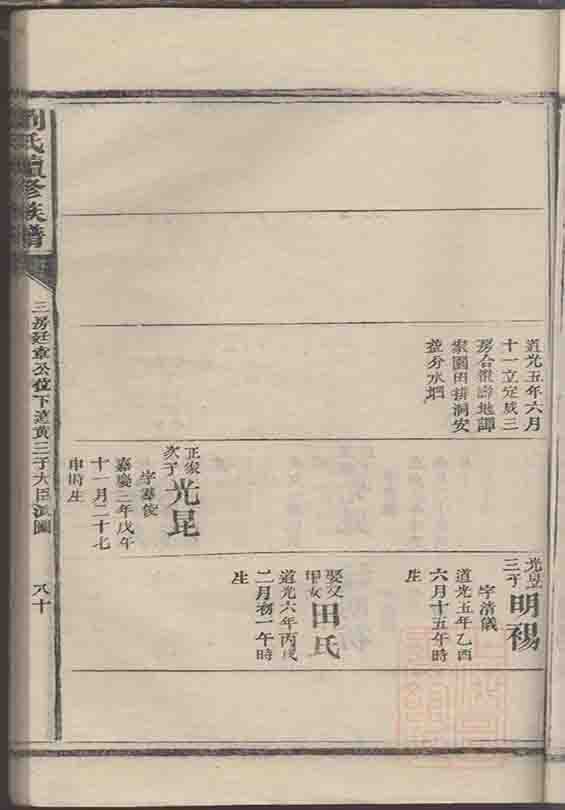 道光五年六月
十一立定戚三
房合
家園田排洞安
葬分水
光昱
三子
明裼
字清儀
道光五年乙酉
六月十五午時
生
娶文
甲女
田氏
道光六年丙戌
二月初一午時
生
正家
次子
光昆
字奉俊
嘉慶三年戊午
十一月二十七
申時生
劉氏續修族譜
三房廷章公位下
三子大臣派圖
八十